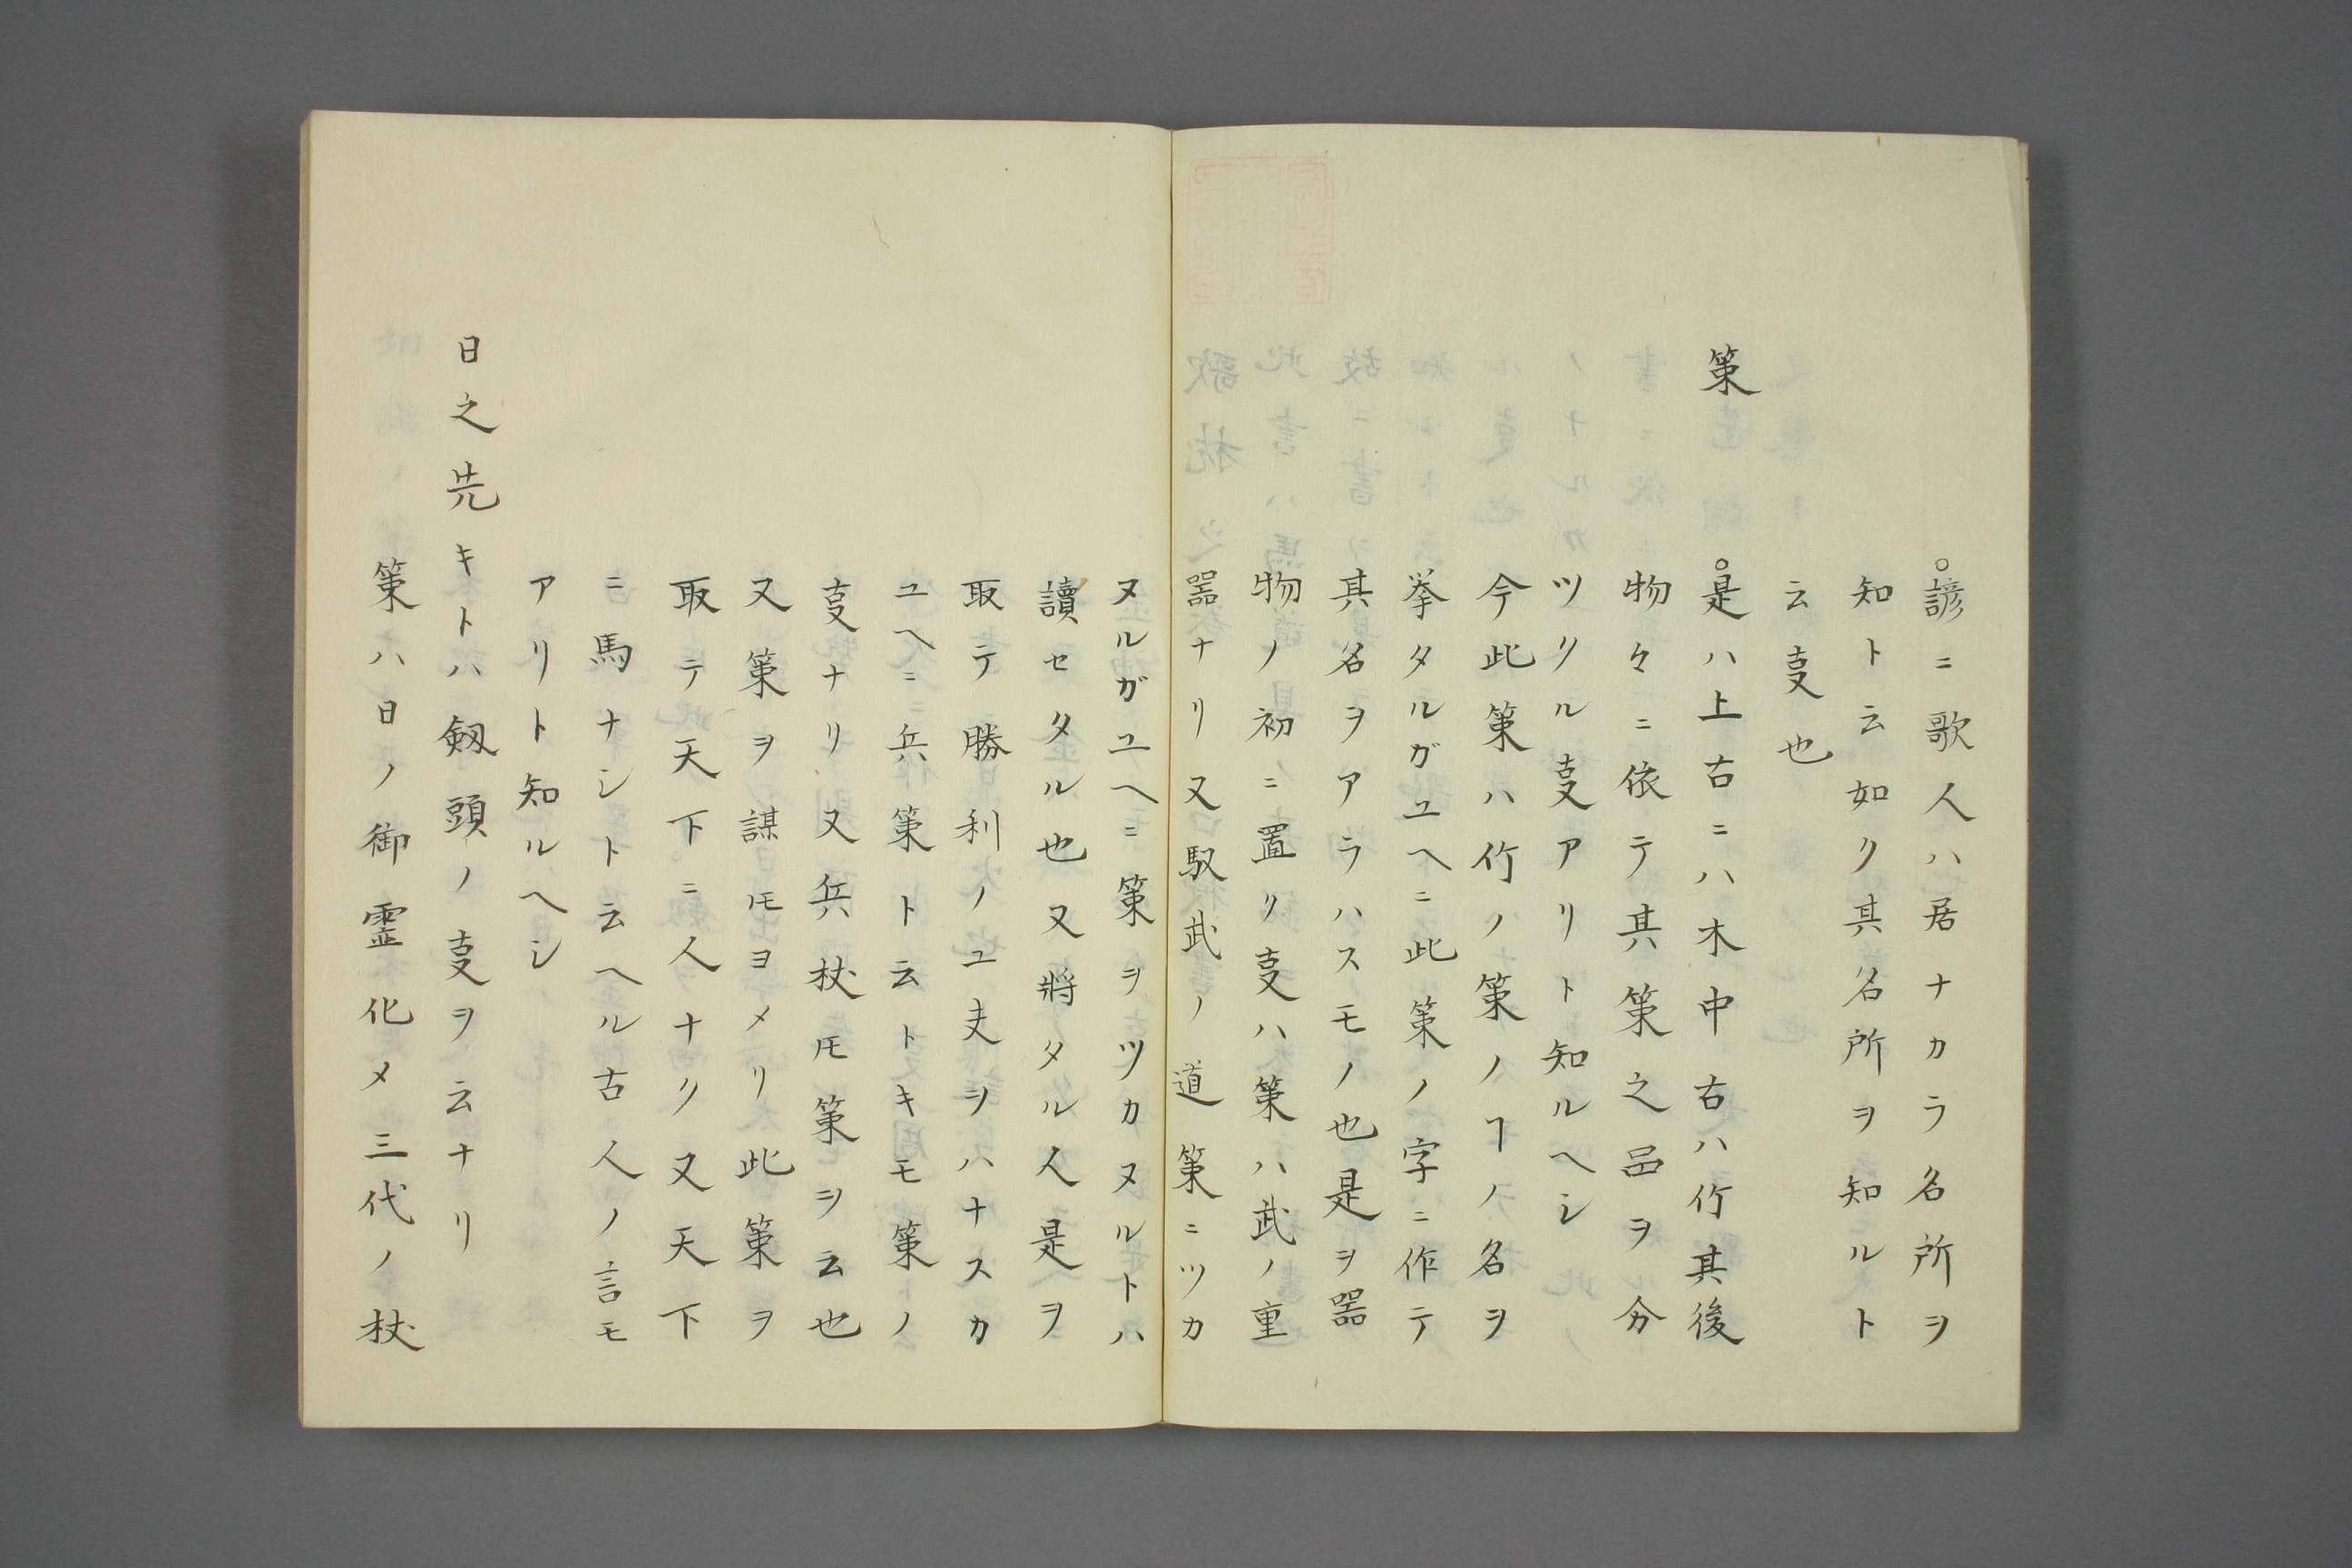 ○諺ニ歌人ハ居ナカラ名所ヲ
知ト云如ク其名所ヲ知ルト
云叓也
策
○是ハ上古ニハ木中古ハ竹其後
物々ニ依テ其策之品ヲ分
ツクル叓アリト知ルヘシ
今此策ハ竹ノ策ノヿノ名ヲ
挙タルガユヘニ此策ノ字ニ作テ
其名ヲアラハスモノ也是ヲ器
物ノ初ニ置ク叓ハ策ハ武ノ重
器ナリ又馭武ノ道策ニツカ
ヌルガユヘニ策ヲツカヌルトハ
讀セタル也又將タル人是ヲ
取テ勝利ノユエヲハナスカ
ユヘニ兵策ト云トキモ策ノ
叓ナリ又兵杖𪜈策ヲ云也
又策ヲ謀𪜈ヨメリ此策ヲ
取テ天下ニ人ナク又天下
ニ馬ナシト云ヘル古人ノ言モ
アリト知ルヘシ
日之先キトハ劔頭ノ叓ヲ云ナリ
策ハ日ノ御霊化メ三代ノ杖